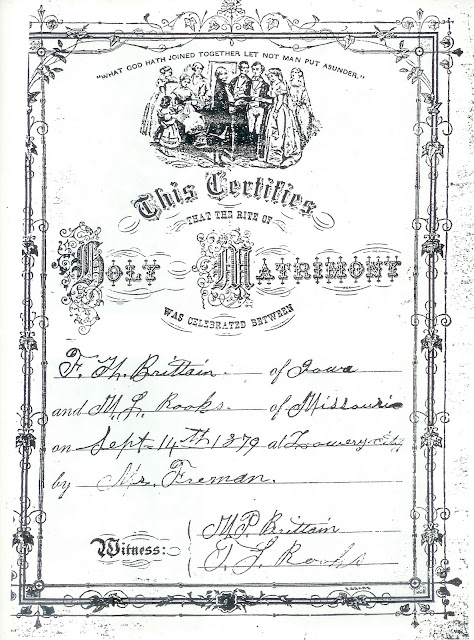 "WHAT GOD HATH JOINED TOGETHER LET NOT MAN PUT ASUNDER."
This Certifies
THAT THE RITE OF
HOLY MATRIMONY
WAS CELEBRATED BETWEEN
F. Th. Brittain. of Iowa
and M. L. Rooks. of Missouri
on Sept 14th 1879 at Lowery City
by Mr. Freman.
Witness:
M. P. Brittain
T. L. Rooks